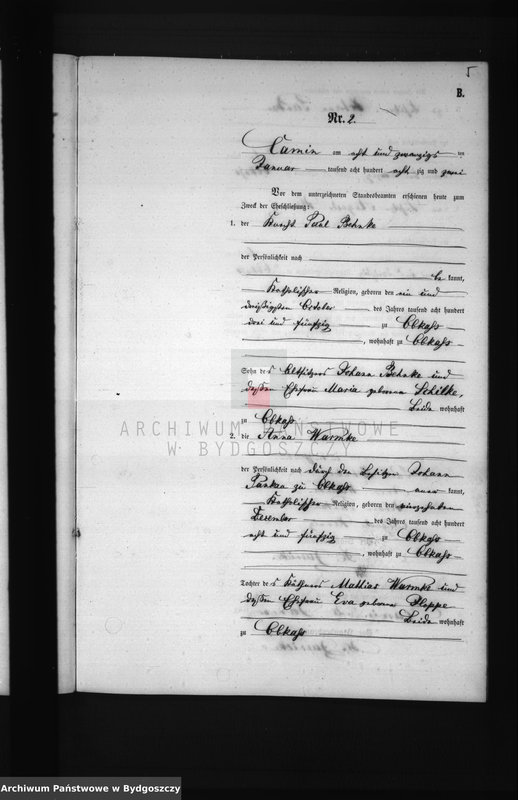 5
B.
Nr. 2.
Camin am acht und zwanzigsten
Januar tausend acht hundert acht zig und zwei
Vor dem unterzeichneten Standesbeamten erschienen heute zum
Zweck der Eheschließung:
1. der Knecht Paul Behnke
der Persönlichkeit nach
be kannt,
Katholischer Religion, geboren den ein und
dreißigsten October des Jahres tausend acht hundert
drei und fünfzig zu Obkaß
, wohnhaft zu Obkaß
Sohn des Altsitzers Johann Behnke und
dessen Ehefrau Maria geborene Schilke,
beide wohnhaft
zu Obkaß
ARCHIWUM PAŃSTWOWE
W BYDGOSZCZY
2. die Anna Warmke
der Persönlichkeit nach durch den Besitzer Johann
zu Obkaß aner kannt,
Katholischer Religion, geboren den vierzehnten
Dezember des Jahres tausend acht hundert
acht und fünfzig zu Obkaß
, wohnhaft zu Obkaß
Tochter des Käthners Mathias Warmke und
dessen Ehefrau Eva geborene Ploppe
beide wohnhaft
zu Obkaß
Archiwum Państwowe w Bydgoszczy